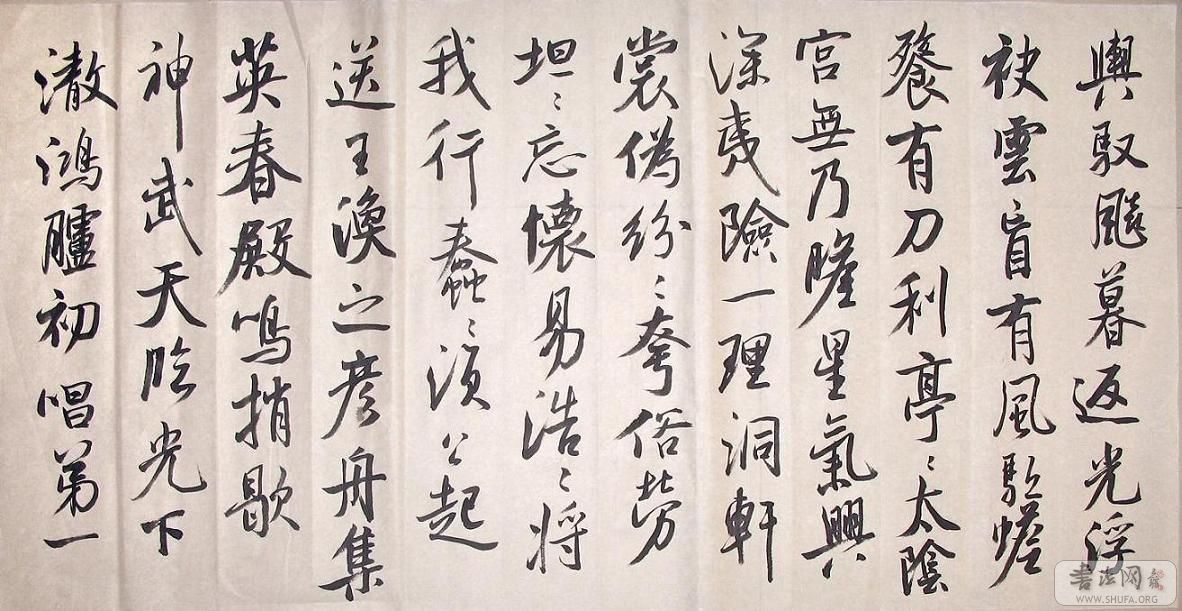 輿馭飈暮返光浮
袂雲盲有風駈蟾
餮有刀利亭〻太陰
宮無乃瞻星氣興
深夷險一理洞軒
裳偽紛〻夸俗勞
坦〻忘懷易浩〻將
我行蠢〻須公起
送王渙之彥舟集
英春殿鳴捎歇
神武天臨光下
澈鴻臚初唱第一
书法网
WWW.SHUFA.ORG